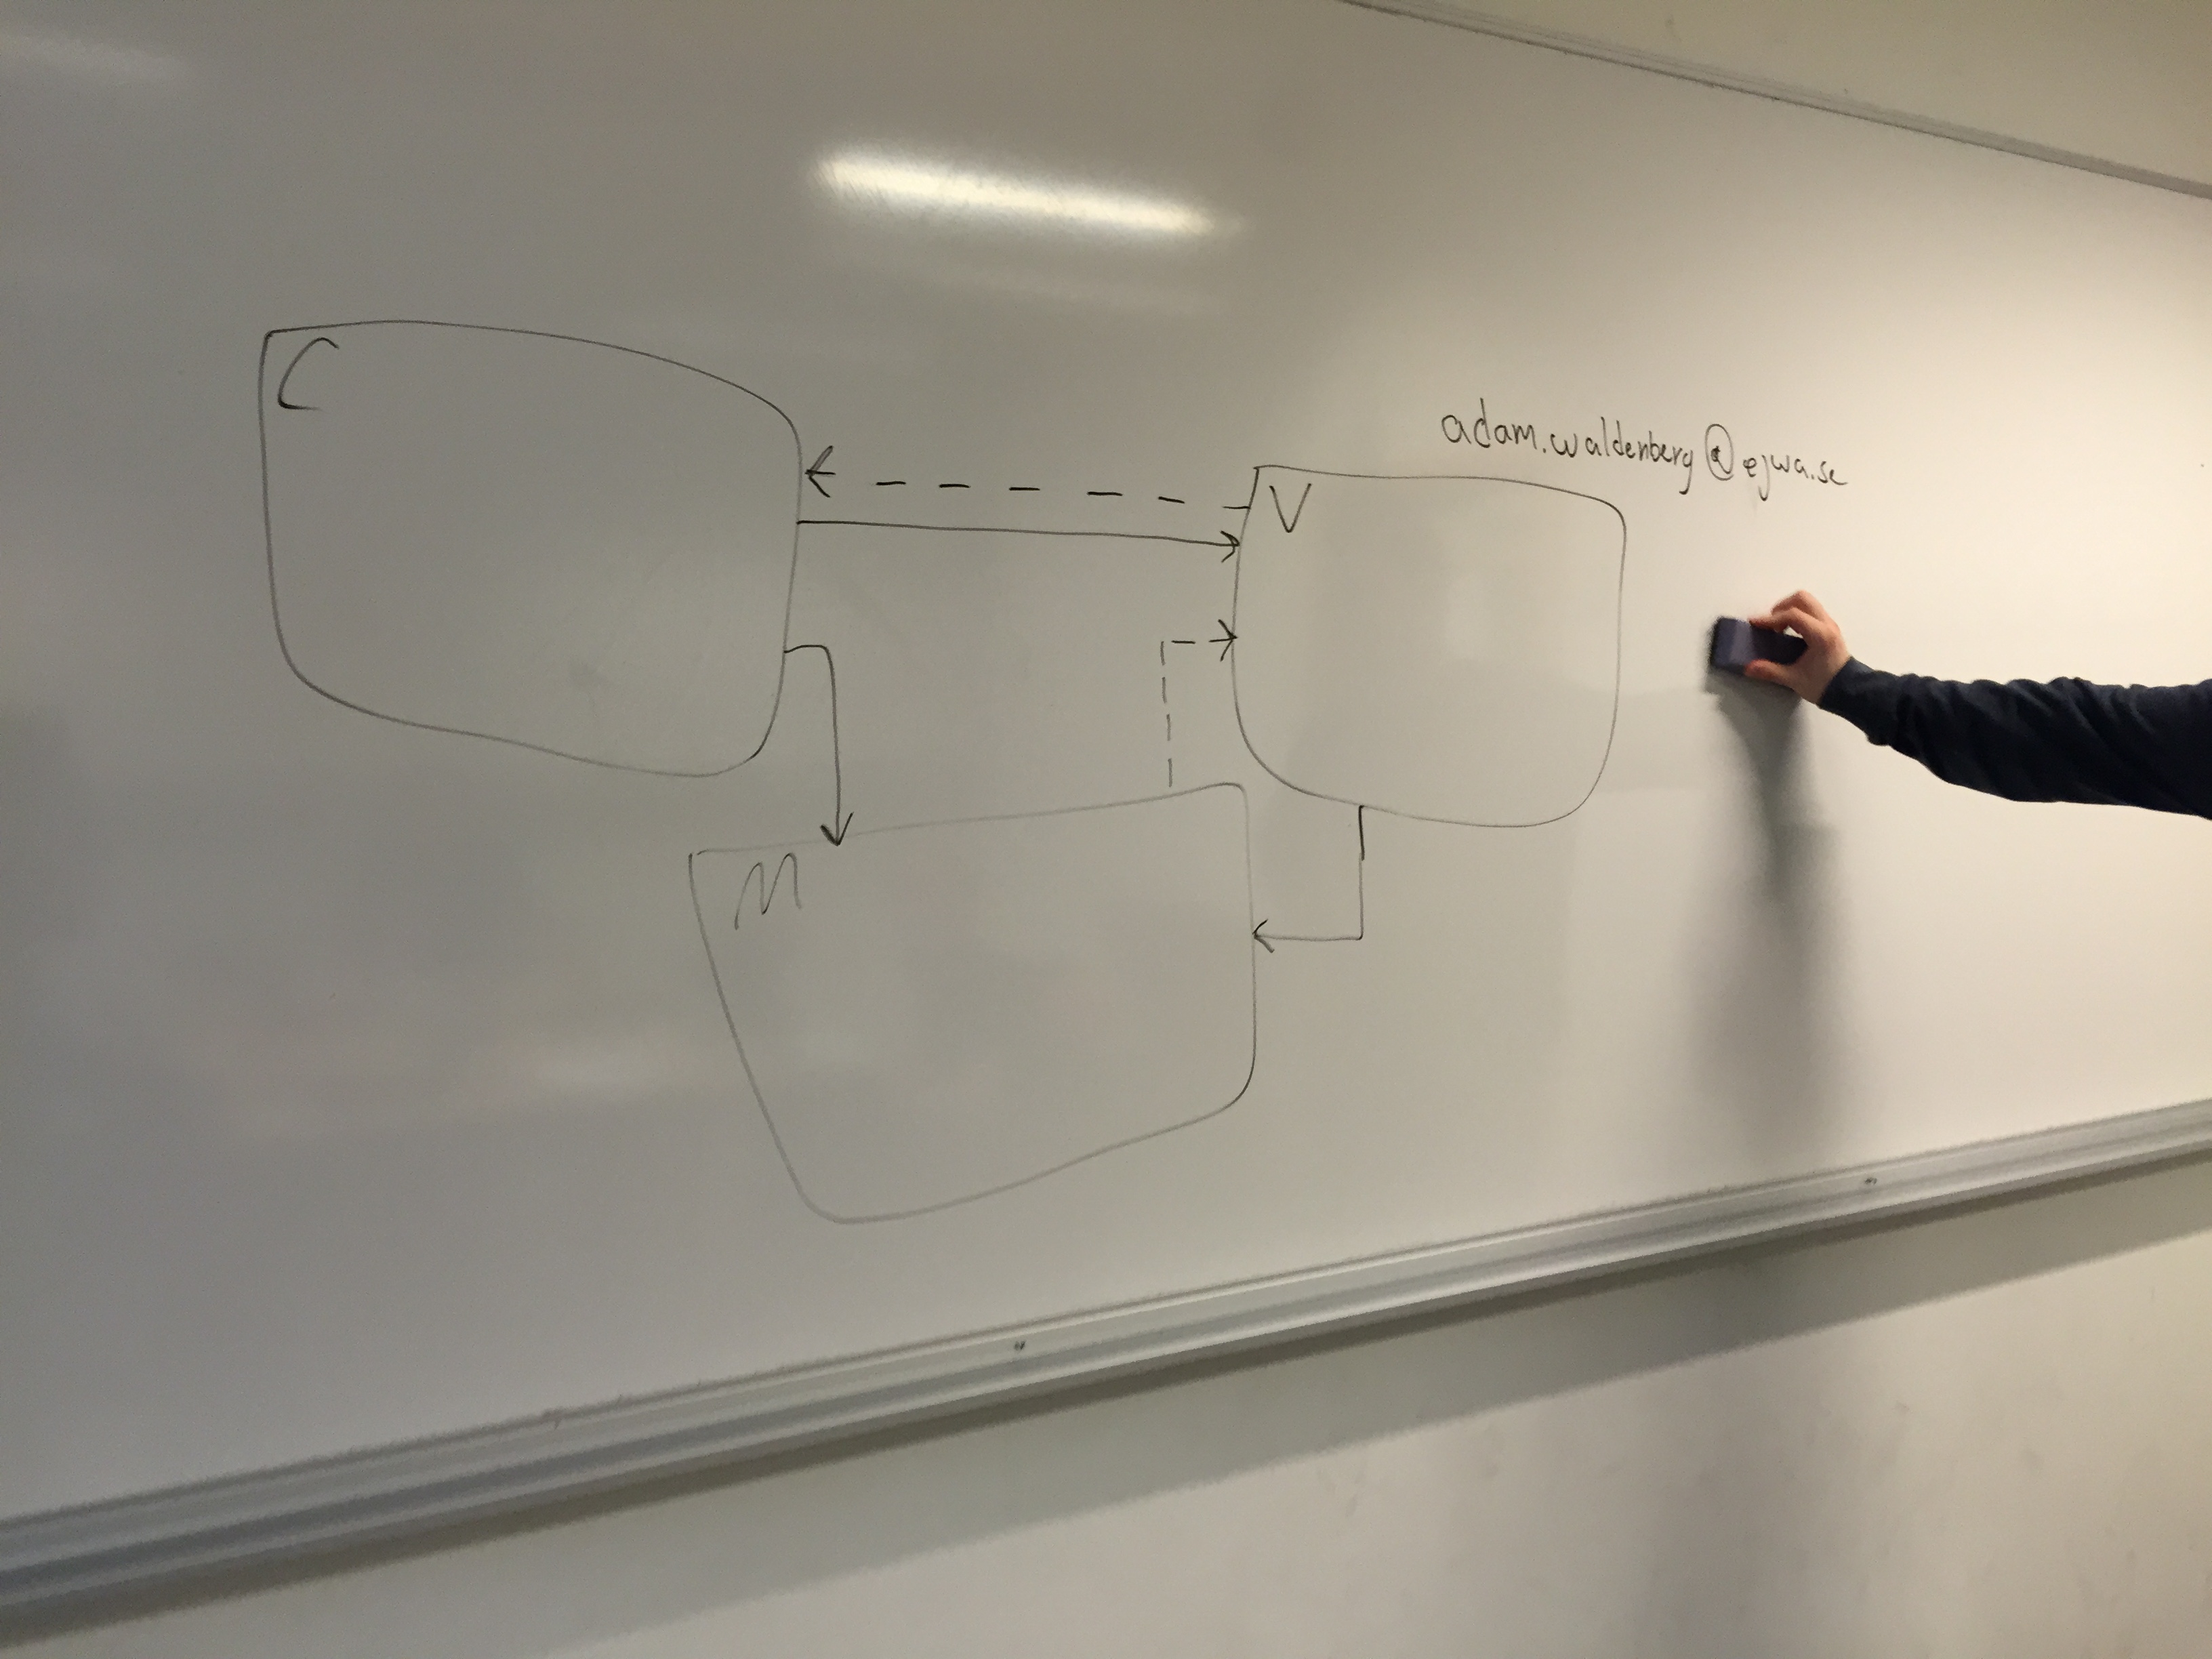 C
V
adam.waldenberg@ejwa.se
M